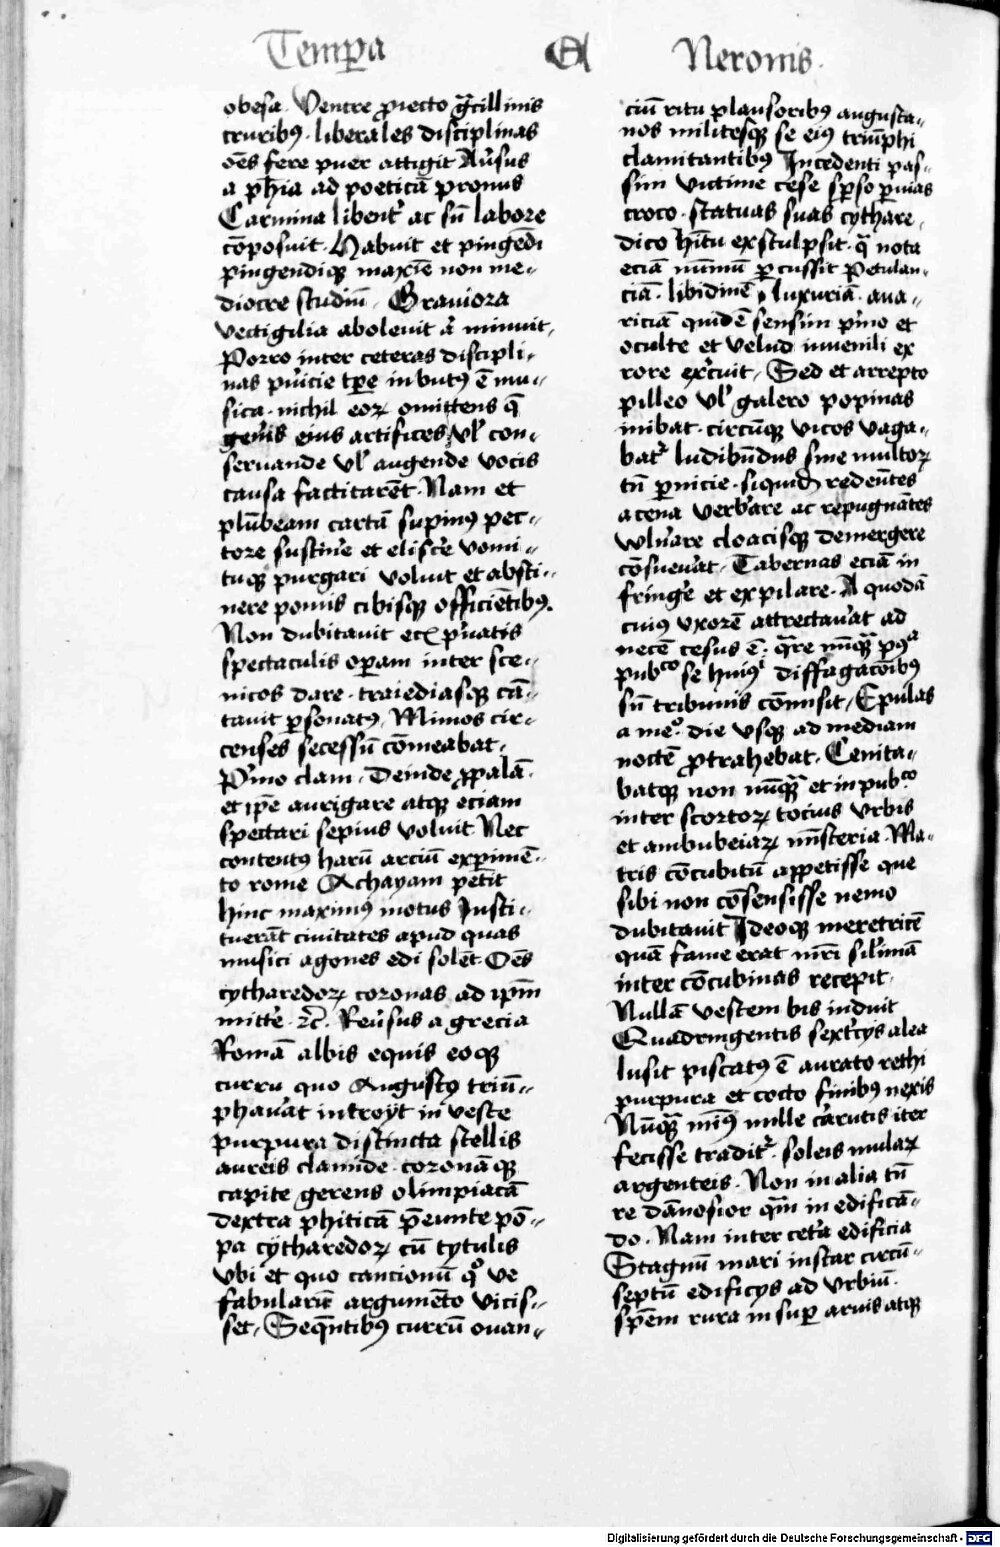 Temꝑa A Neronis
obesa. Ventre ꝓiecto gͣcillinis
cruribꝰ. liberales disciplinas
oēs fere puer attigit Aūsus
a ph̄ia ad poeticā pronus
Carmina libent̄ ac sn̄ labore
cōposuit. Habuit et pingēdi
pingendiqꝫ maxīe non me-
diocre studiū. Graviora
vectigilia abolevit aͭ minuit.
Porro inter ceteras discipli-
nas pu̅icie tꝑe inbutꝰ ē mu-
sica. nichil eoꝝ omittens q̄
gen̄is eius artifices vl̓ con-
seruande vl̓ augende vocis
causa factitarēt. Nam et
plūbeam cartā supinꝰ pec-
tore sustine̅ et elisce̅ vomi-
tuqꝫ purgari voluit et absti-
nere pomis cibisqꝫ officiētibꝰ.
Non dubitauit ecī p̄uatis
spectaculis oꝑam inter sce-
nicos dare. traiediasqꝫ cā-
tauit ꝑsonatꝰ. Mimos cir-
censes secessū cōmeabat.
P̄mo clam. Deinde ꝓpalā.
et ip̄e aurigare atqꝫ eciam
spectari sepius voluit Nec
contentꝰ harū arciū exꝑimē-
to rome Achayam petīit
hinc maximꝰ motus Insti-
tuerāt ciuitates apud quas
musici agones edi solēt. Oēs
cytharedoꝝ coronas ad ip̄m
mitte̅. ꝛc̄. Reūsus a grecia
Romā albis equis eoqꝫ
curru quo Augustꝰ triū-
phau̅at introyt in veste
purpura distincta stellis
aureis clamide. coronāqꝫ
capite gerens olimpiacā
dextra phiticā p̄eunte pō-
pa cytharedoꝝ cū tytulis
vbi et quo cancionū qͦ ve
fabularū argumēto vicis-
set. Seqn̄tibꝰ currū ouan-
ciū ritu plausoribꝰ augusta-
nos militesqꝫ se eiꝰ triūphi
clamitantibꝰ Incedenti pas-
sim victime cese sꝑso ꝑ vias
croco. statuas suas cythare-
dico hītu exsculpsit. qͣ nota
eciā nūmū ꝑcussit Petulan-
ciā. libidinē luxuriā. aua-
riciā quidē sensim p̄mo et
oculte et velud iuuenili er
rore ex̄cuit. Sed et arrepto
pilleo vl̓ galero popinas
inibat. circūqꝫ vicos vaga-
batͬ ludibūdus sine multoꝝ
tn̄ ꝑnicie. siquidē redeūtes
a cena verb̄are ac repugnātes
wln̄are cloacisqꝫ demergere
cōsueu̅at. Tabernas eciā in
fringe̅ et expilare. A quodā
cuiꝰ vxorē attrectau̅at ad
necē cesus ē. qͣre nūqͣ pꝰͣ
pubᶜᵒ se huiꝰͥ diffagacōibꝰ
sn̄ tribunis cōmisit. Epulas
a meͦ. die vsqꝫ ad mediam
noctē ꝓtrahebat. Cenita-
batqꝫ non nūqͣ et in pubᶜᵒ
inter scortoꝝ tocius vrbis
et ambubeiaꝝ mīsteria. Ma-
tris cōcubitū appetisse que
sibi non cōsensisse nemo
dubitauit Ideoqꝫ meretricē
quā fame erat mr̄i sil̓imā
inter cōcubinas recepit.
Nullā vestem bis induit
Quadringentis sext̄cys alea
lusit piscatꝰ ē aurato rethi
purpura et cocto finibꝰ nexis
Nūqͣ minꝰ mille ca̅rutis iter
fecisse traditͬ. soleis mulaꝝ
argenteis. Non in alia tn̄
re dāpnosior qͣm in edificā-
do. Nam inter cet̄a edificia
Stagnū mari instar circū-
septū edificys ad vrbiū.
spēm rura insuꝑ aruis atqꝫ
Digitalisierung gefördert durch die Deutsche Forschungsgemeinschaft - DFG